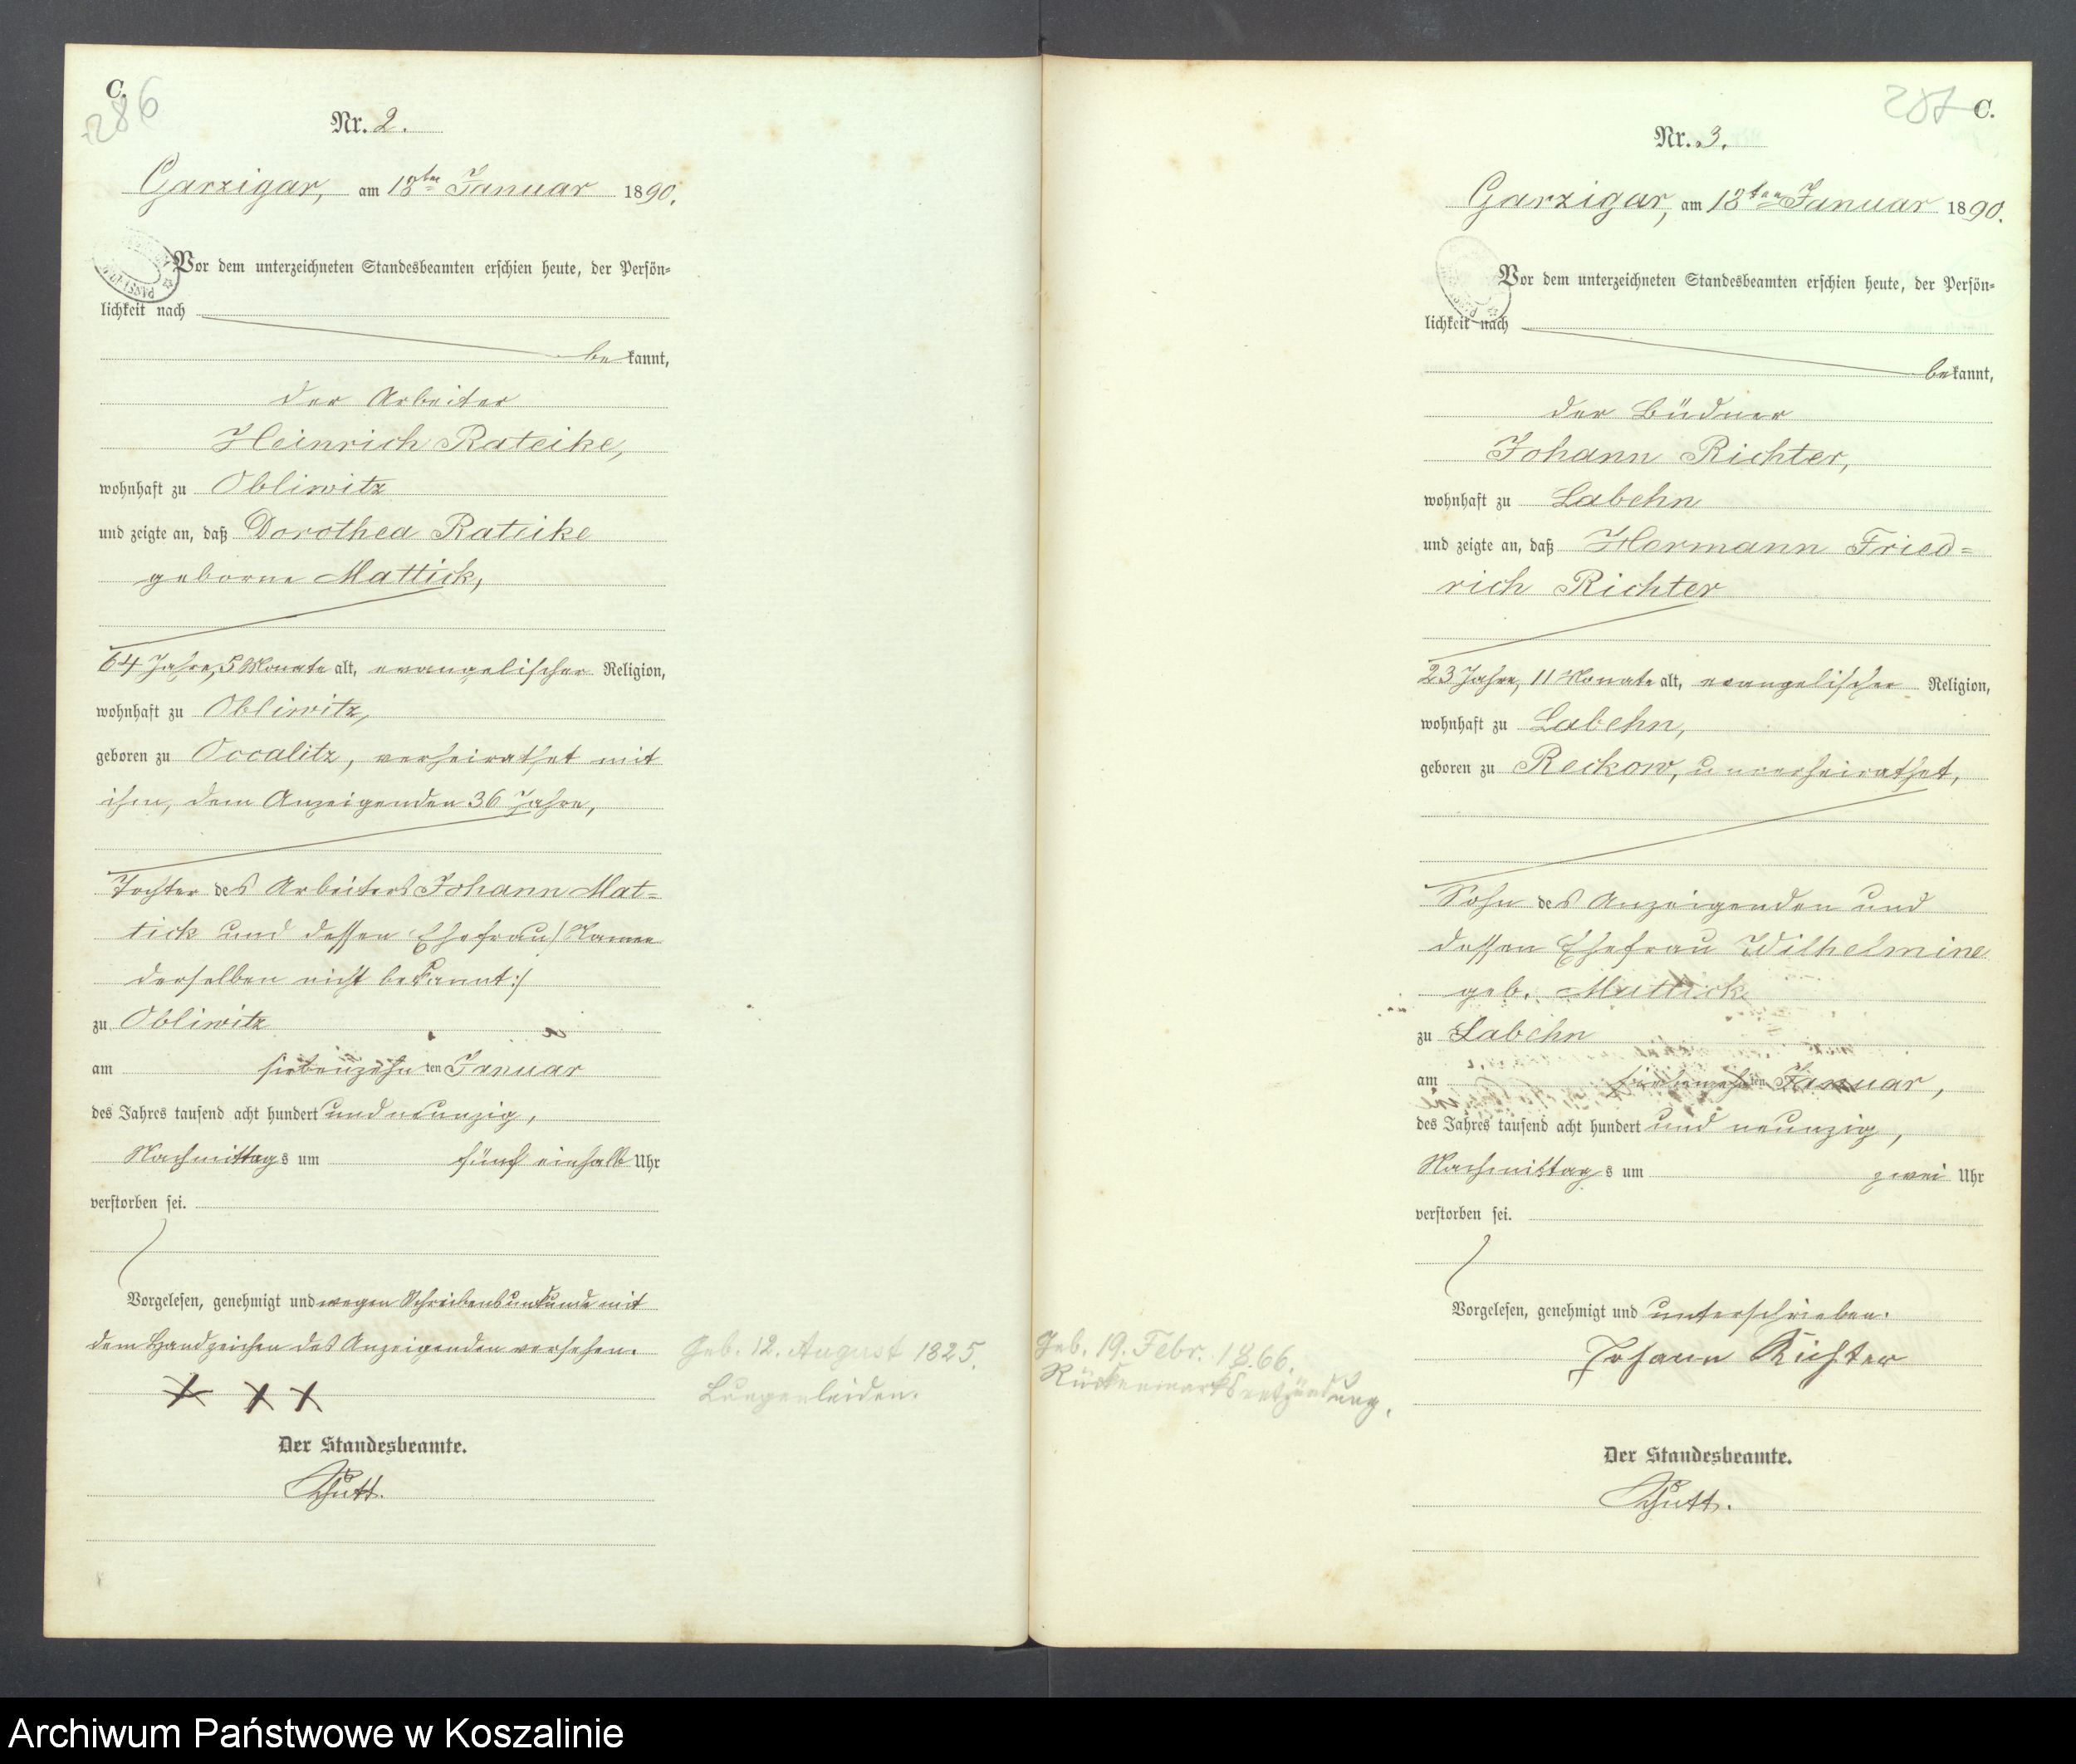 C.
286
Nr. 2.
Garzigar, am 18ten Januar 1890.
Vor dem unterzeichneten Standesbeamten erschien heute, der Persön-
lichkeit nach
bekannt,
der Arbeiter
Heinrich Rateike,
wohnhaft zu Obliwitz
und zeigte an, daß Dorothea Rateike
geborne Mattick,
64 Jahre, 5 Monate alt, evangelischer Religion,
wohnhaft zu Obliwitz,
geboren zu Occalitz, verheirathet mit
ihm, dem Anzeigenden 36 Jahre,
Tochter des Arbeiters Johann Mat-
tick und dessen Ehefrau /: Namen
derselben nicht bekannt :/
zu Obliwitz
am siebenzehnten Januar
des Jahres tausend acht hundert und neunzig,
Nachmittags um fünf einhalb Uhr
verstorben sei.
Vorgelesen, genehmigt und wegen Schreibensunkunde mit
dem Handzeichen des Anzeigenden versehen.
X X X
Der Standesbeamte.
Schutt.
Geb. 12. August 1825.
Lungenleiden.
287 C.
Nr. 3.
Garzigar, am 18ten Januar 1890.
Vor dem unterzeichneten Standesbeamten erschien heute, der Persön-
lichkeit nach
bekannt,
der Büdner
Johann Richter,
wohnhaft zu Labehn
und zeigte an, daß Hermann Fried-
rich Richter
23 Jahre, 11 Monate alt, evangelischer Religion,
wohnhaft zu Labehn,
geboren zu Reckow, unverheirathet,
Sohn des Anzeigenden und
dessen Ehefrau Wilhelmine
geb. Mattick
zu Labehn
am siebenzehnten Januar,
des Jahres tausend acht hundert und neunzig,
Nachmittags um zwei Uhr
verstorben sei.
Vorgelesen, genehmigt und unterschrieben.
Johann Richter
Der Standesbeamte.
Schutt.
Geb. 19. Febr. 1866.
Rückenmarksentzündung.
Archiwum Państwowe w Koszalinie